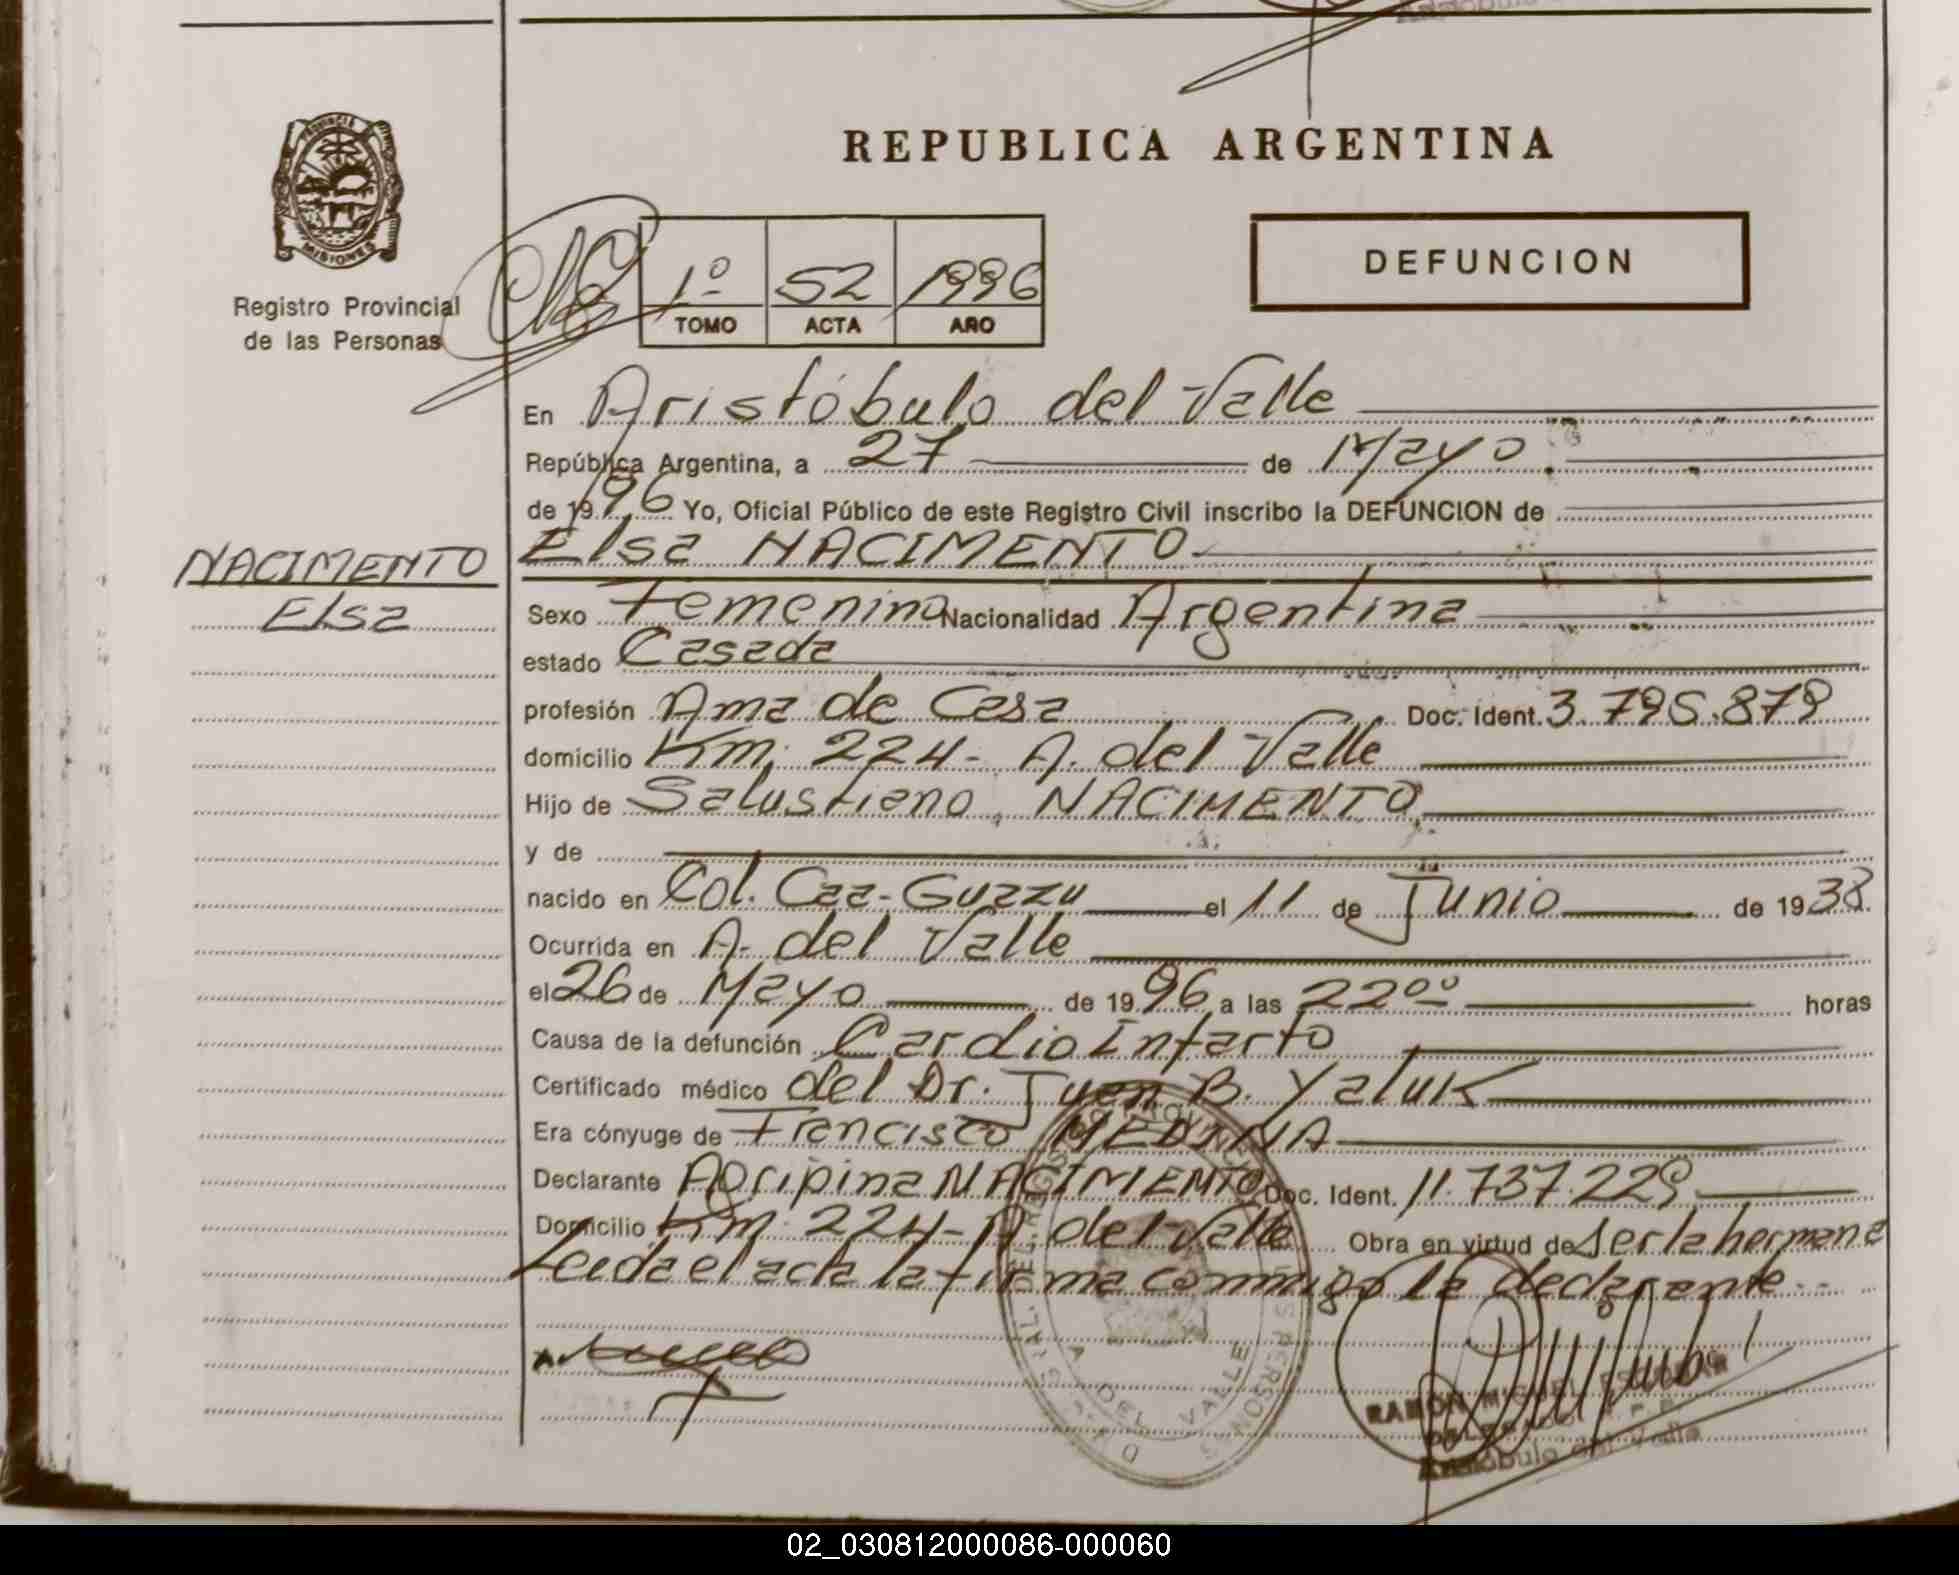 PROVINCIA DE
MISIONES
Registro Provincial
de las Personas
REPUBLICA ARGENTINA
1º 52 1996
TOMO ACTA AÑO
DEFUNCION
En Aristóbulo del Valle
República Argentina, a 27 de Mayo
de 1996 Yo, Oficial Público de este Registro Civil inscribo la DEFUNCION de
NACIMENTO
Elsa
Elsa NACIMENTO
Sexo Femenino Nacionalidad Argentina
estado Casada
profesión Ama de Casa Doc. Ident. 3.795.879
domicilio Km. 224- A. del Valle
Hijo de Salustiano NACIMENTO
y de
nacido en Col. Caa-Guazu el 11 de Junio de 1938
Ocurrida en A. del Valle
el 26 de Mayo de 1996 a las 22ºº horas
Causa de la defunción Cardio Infarto
Certificado médico del Dr. Juan B. Yaluk
Era cónyuge de Francisco MEDINA
Declarante Agripina NACIMIENTO Doc. Ident. 11.737.229
Domicilio Km. 224- A del Valle Obra en virtud de ser la hermana
Leida el acta la firma conmigo la declarante
RAMON MIGUEL
Aristóbulo del Valle
02_030812000086-000060